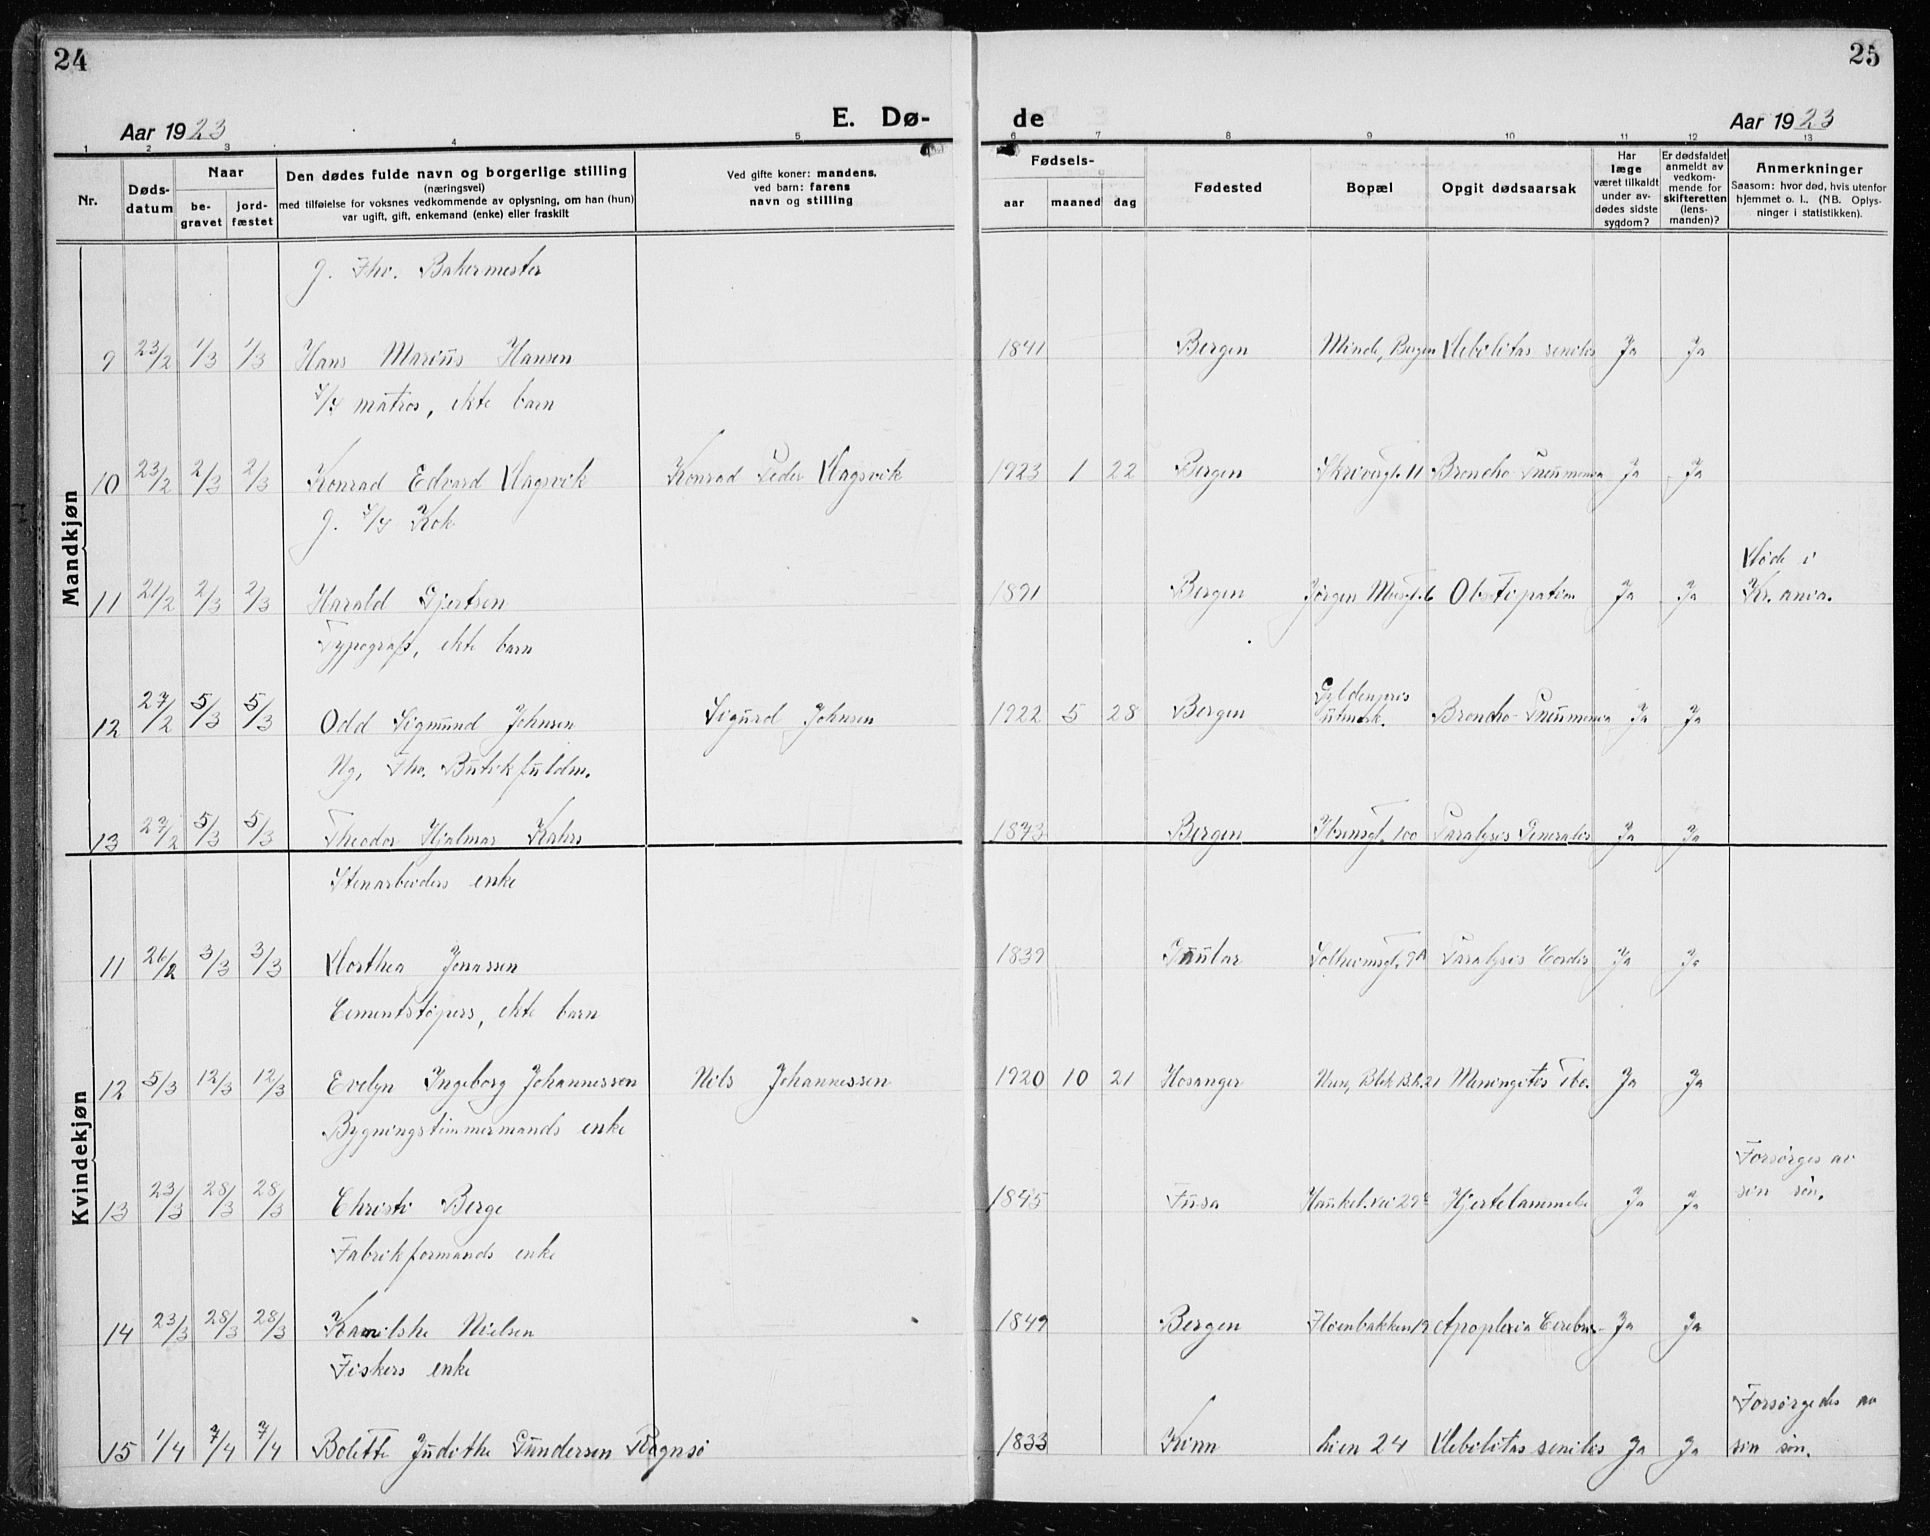 24
25
Aar 1923
E. Dø-
de
Aar 1923
1 2 3 4 5 6 7 8 9 10 11 12 13
Nr.
Døds-
datum
Naar
be-
gravet
jord-
fæstet
Den dødes fulde navn og borgerlige stilling
(næringsvei)
med tilføielse for voksnes vedkommende av oplysning, om han (hun)
var ugift, gift, enkemand (enke) eller fraskilt
Ved gifte koner: mandens,
ved barn: farens
navn og stilling
Fødsels-
aar maaned dag
Fødested
Bopæl
Opgit dødsaarsak
Har
læge
været tilkaldt
under av-
dødes sidste
sygdom?
Er dødsfaldet
anmeldt av
vedkom-
mende for
skifteretten
(lens-
manden)?
Anmerkninger
Saasom: hvor død, hvis utenfor
hjemmet o. l.. (NB. Oplys-
ninger i statistikken).
Mandkjøn
g. Fhv. Bakermester
9 23/2 1/3 1/3 Hans Marius Hansen 1841 Bergen Minde, Bergen Debilitas seniles Ja Ja
matros, ekte barn
10 23/2 2/3 2/3 Konrad Edvard Dagsvik Konrad Peder Dagsvik 1923 1 22 Bergen Skrivergt. 11 Broncho-Pneumonia Ja Ja
g. Kok
Døde i
11 21/2 2/3 2/3 Harald Gjertsen 1891 Bergen Obstipation Ja Ja Kr.ania.
Typograf, ekte barn
Gyldenpris
12 27/2 5/3 5/3 Odd Sigmund Johnsen Sigurd Johnsen 1922 5 28 Bergen utmark. Broncho-Pneumonia Ja Ja
Ug. Fhv. Butikfuldm.
13 27/2 5/3 5/3 Theodor Hjalmar Kahrs 1873 Bergen Ibsensgt. 100 Paralysis Generalis Ja Ja
Kvindekjøn
Stenarbeiders enke
11 26/2 3/3 3/3 Dorthea Jonassen 1839 Gaular Solheimsgt. 9A Paralysis Cordis Ja Ja
Cementstøpers, ekte barn
12 5/3 12/3 12/3 Evelyn Ingeborg Johannessen Nils Johannessen 1920 10 21 Hosanger 21 Meningites Tbc. Ja Ja
Bygningstimmermands enke
Forsørges av
13 23/3 28/3 28/3 Christi Berge 1845 Fusa Haukel.vei 29 Hjertelammelse Ja Ja sin søn.
Fabrikformands enke
14 23/3 28/3 28/3 Nielsen 1849 Bergen Fløenbakken 19 Apoplexia Cerebri Ja Ja
Fiskers enke
Forsørgedes av
15 1/4 7/4 7/4 Bolette Judithe Gundersen Rognsø 1833 Kinn Lien 24 Debilitas seniles Ja Ja sin søn.